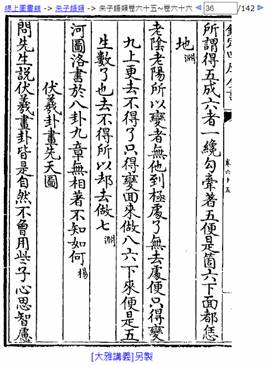 線上圖書館 -> 朱子語類 -> 朱子語類卷六十五~卷六十六 36 /142
卷六十五
所謂得五成六者一纔勾牽著五便是箇六下面都恁
地 淵
老陰老陽所以變者無他到極處了無去處便只得變
九上更去不得了只得變回來做八六下來便是五
生數了也去不得所以却去做七 淵
河圖洛書於八卦九章無相著不知如何 楊
伏羲卦畫先天圖
問先生説伏羲畫卦皆是自然不曾用些子心思智慮
[大雅講義]另製